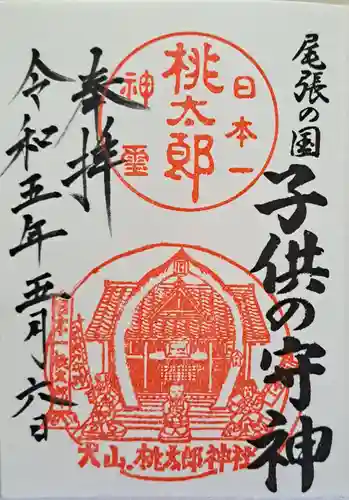 尾張の国
子供の守神
日本一
桃太郎
神璽
奉拝
令和五年五月六日
犬山 桃太郎神社